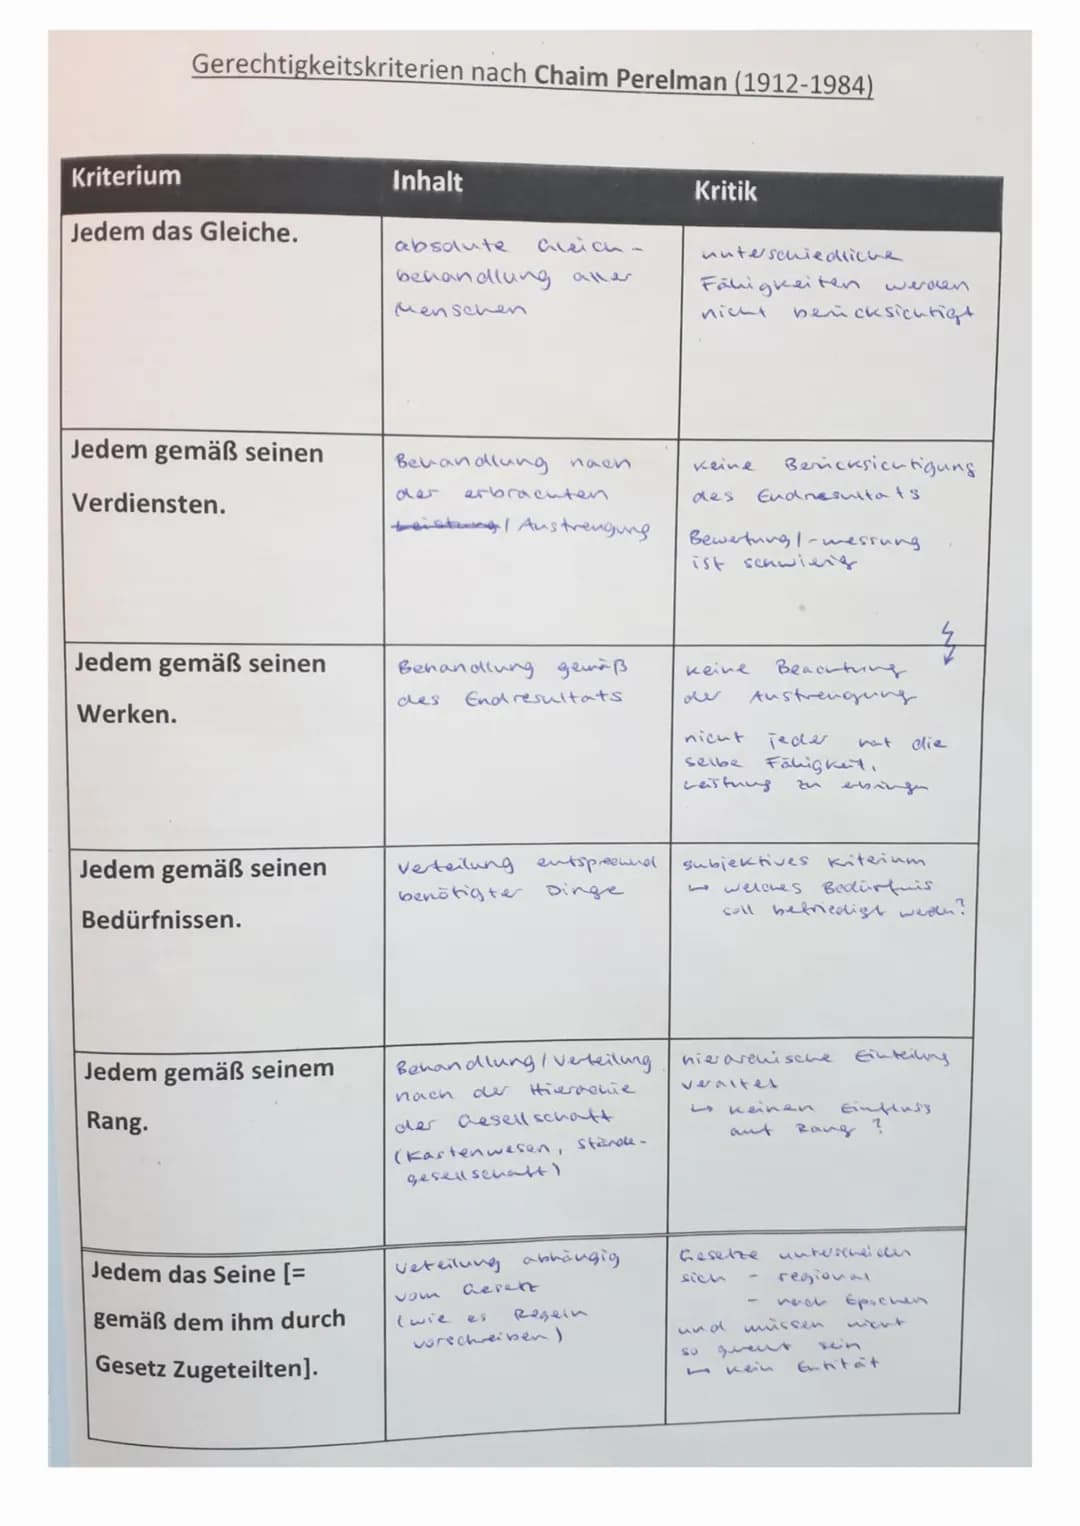 Gerechtigkeitskriterien nach Chaim Perelman (1912-1984)
Kriterium
Inhalt
Kritik
Jedem das Gleiche.
absolute Gleich-
behandlung aller
Menschen
unterschiedliche
Fähigkeiten werden
nicht berücksichtigt
Jedem gemäß seinen
Verdiensten.
Behandlung nach
der erbrachten
Leistung / Anstrengung
keine Berücksichtigung
des Endresultats
Bewertung / -messung
ist schwierig
Jedem gemäß seinen
Werken.
Behandlung gemäß
des Endresultats
keine Beachtung
der Anstrengung
nicht jeder hat die
selbe Fähigkeit,
Leistung zu erbringen
Jedem gemäß seinen
Bedürfnissen.
Verteilung entsprechend
benötigter Dinge
subjektives Kriterium
↳ welches Bedürfnis
soll befriedigt werden?
Jedem gemäß seinem
Rang.
Behandlung / Verteilung
nach der Hierachie
der Gesellschaft
(Kastenwesen, Stände-
gesellschaft)
hierarchische Einteilung
veraltet
↳ keinen Einfluss
auf Rang ?
Jedem das Seine [=
gemäß dem ihm durch
Gesetz Zugeteilten].
Verteilung abhängig
vom Gesetz
(wie es Regeln
vorschreiben)
Gesetze unterscheiden
sich - regional
- nach Epochen
und müssen nicht
so gerecht sein
↳ kein Entität